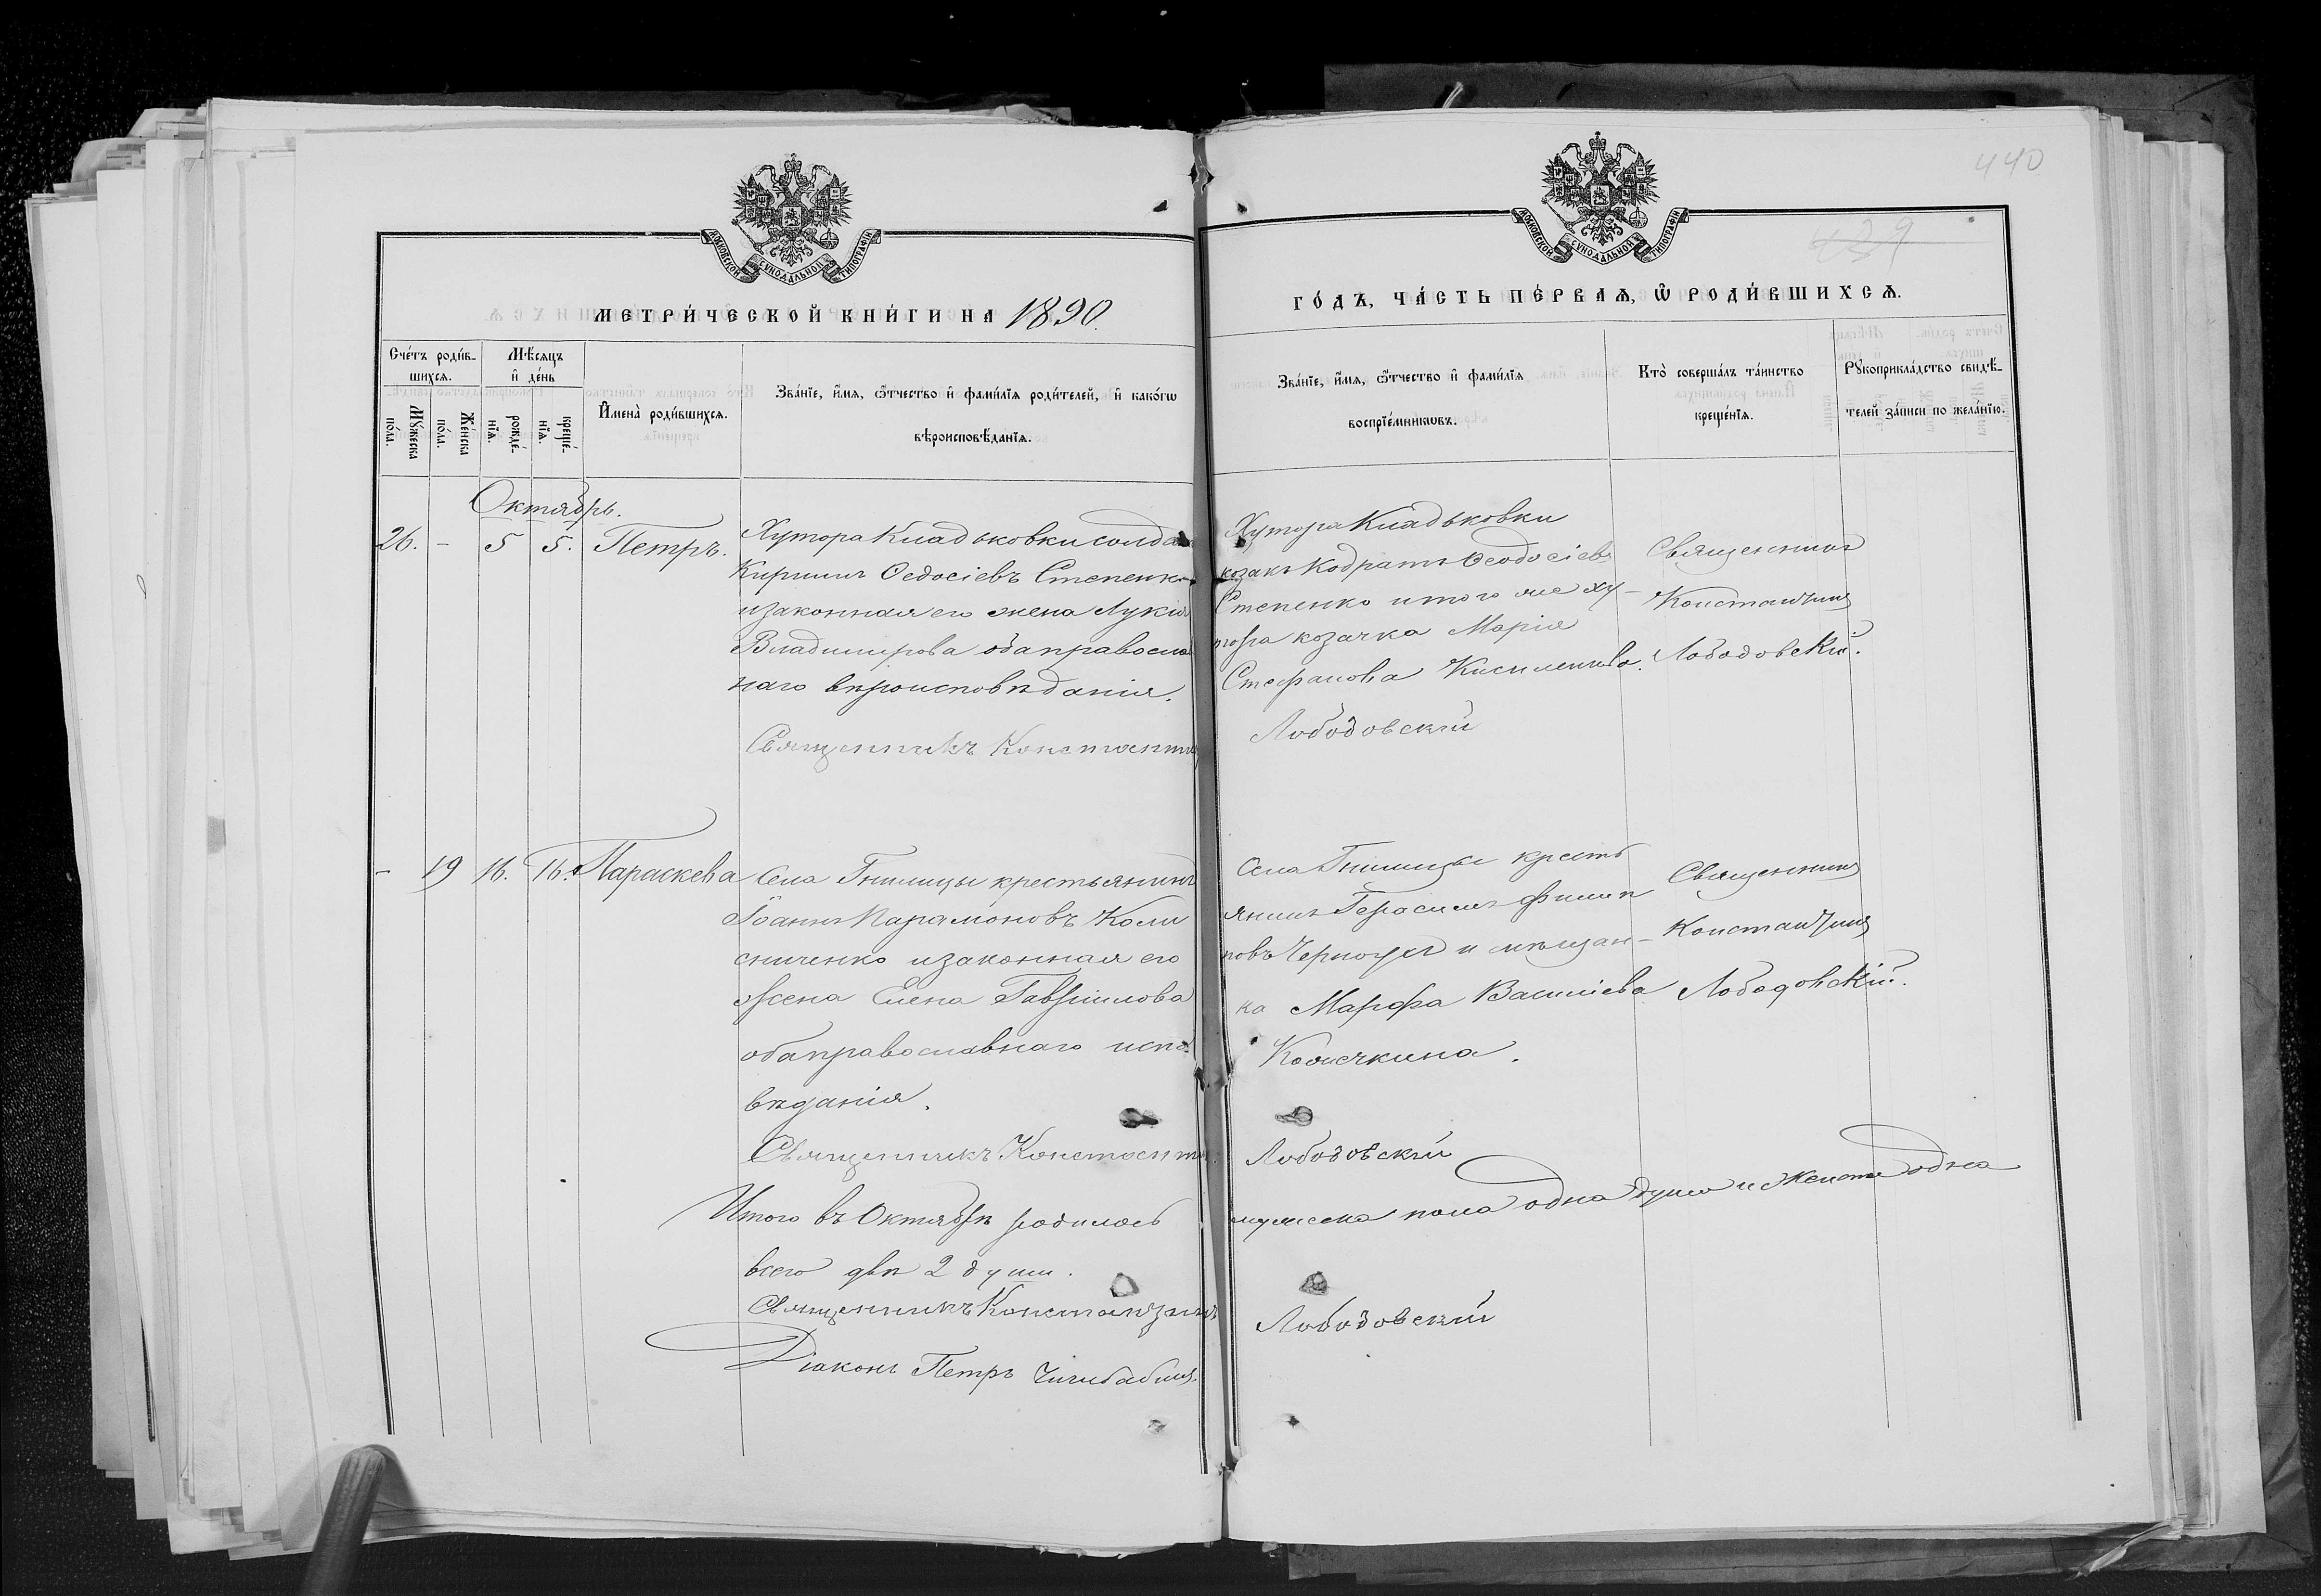 МОСКОВСКОЙ СУНОДАЛЬНОЙ ТИПОГРАФІИ
МЕТРИ́ЧЕСКОЙ КНИ́ГИ НА 1890.
Сче́тъ роди́в-
шихсѧ.
Мꙋ́жеска
по́ла.
Же́нска
по́ла.
Мѣ́сѧцъ
и҆ де́нь
рожде́-
нїѧ.
креще́-
нїѧ.
И҆мена̀ роди́вшихсѧ.
Зва́нїе, и҆́мѧ, ѻ҆́тчество и҆ фами́лїѧ роди́телей, и҆ како́гѡ
вѣроисповѣ́данїѧ.
Октябрь.
26. - 5 5. Петръ.
Хутора Кладьковки солда
Кириллъ Ѳедосіевъ Степенко
и законная его жена Лукія
Владимірова оба правосла
наго вѣроисповѣданія.
Священникъ Константинъ
- 19 16. 16. Параскева
Села Гнилицы крестьянинъ
Іоаннъ Парамоновъ Коли
сниченко и законная его
жена Елена Гавріилова
оба православнаго испо
вѣданія.
Священникъ Константинъ
Итого въ Октябрѣ родилось
всего двѣ 2 души.
Священникъ Константинъ
Діаконъ Петръ
440
439
МОСКОВСКОЙ СУНОДАЛЬНОЙ ТИПОГРАФІИ
ГО́ДЪ, ЧА́СТЬ ПЕ́РВАѦ, Ѽ РОДИ́ВШИХСѦ.
Зва́нїе, и҆́мѧ, ѻ҆́тчество и҆ фами́лїѧ
воспрїе́мникѡвъ.
Кто̀ соверша́лъ та́инство
креще́нїѧ.
Рꙋкоприкла́дство свидѣ́-
телей за́писи по жела́нїю.
Хутора Кладьковки
козакъ Кодратъ Ѳеодосіевъ
Степенко и того же ху-
тора козачка Марія
Стефанова
Священникъ
Константинъ
Лободовскій.
Лободовскій
Села Гнилицы кресть
янинъ Герасимъ Филип
повъ и мѣщан-
ка Марфа Василіева
Священникъ
Константинъ
Лободовскій.
Лободовскій
мужеска пола одна душа и женска одна
Лободовскій